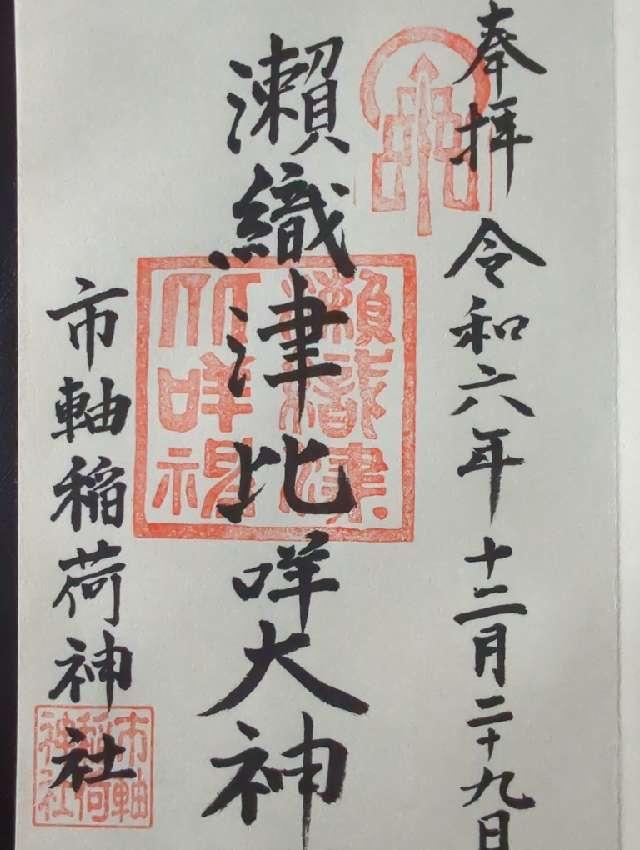 奉拝 令和六年十二月二十九日
瀬織津比咩大神
市軸稲荷神社
瀬織津比咩神
市軸稲荷神社